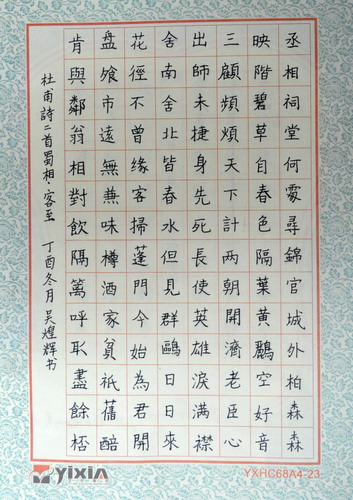 丞相祠堂何處尋錦官城外柏森森
映階碧草自春色隔葉黃鸝空好音
三顧頻煩天下計兩朝開濟老臣心
出師未捷身先死長使英雄淚滿襟
舍南舍北皆春水但見群鷗日日來
花徑不曾緣客掃蓬門今始為君開
盤飧市遠無兼味樽酒家貧祇舊醅
肯與鄰翁相對飲隔籬呼取盡餘杯
杜甫詩二首蜀相·客至 丁酉冬月 吴煌辉书
YIXIN
YXHC68A4-23